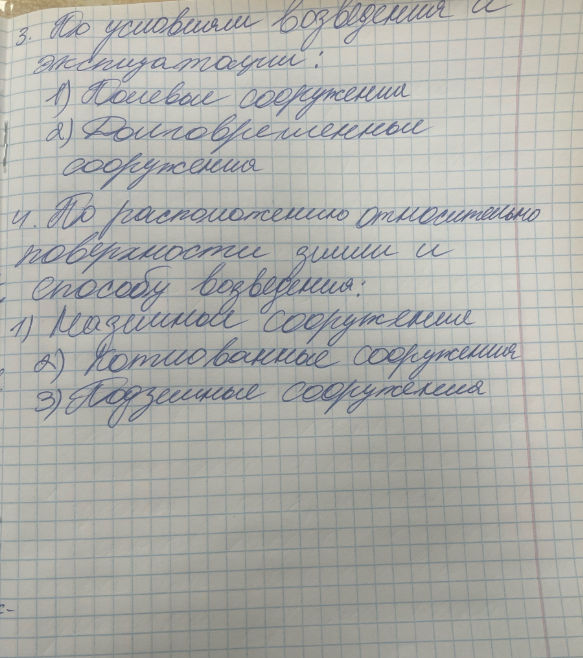 3. По условиям возведения и
эксплуатации:
1) Полевые сооружения
2) Долговременные
сооружения
4. По расположению относительно
поверхности земли и
способу возведения:
1) Наземные сооружения
2) Котлованные сооружения
3) Подземные сооружения